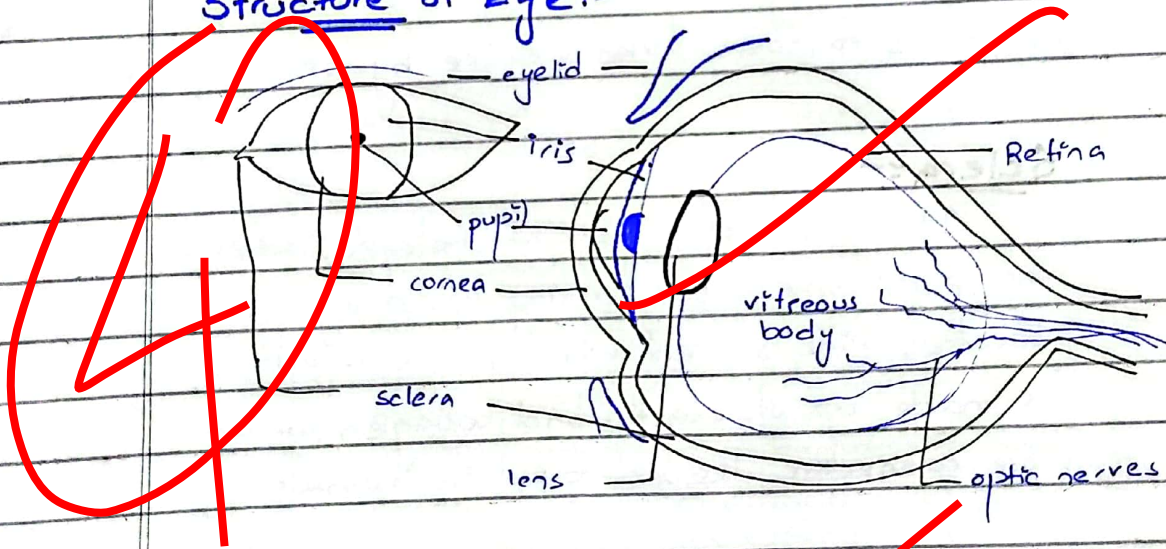 Structure of Eye:
eyelid
iris
Retina
pupil
cornea
vitreous
body
sclera
lens
optic nerves
4